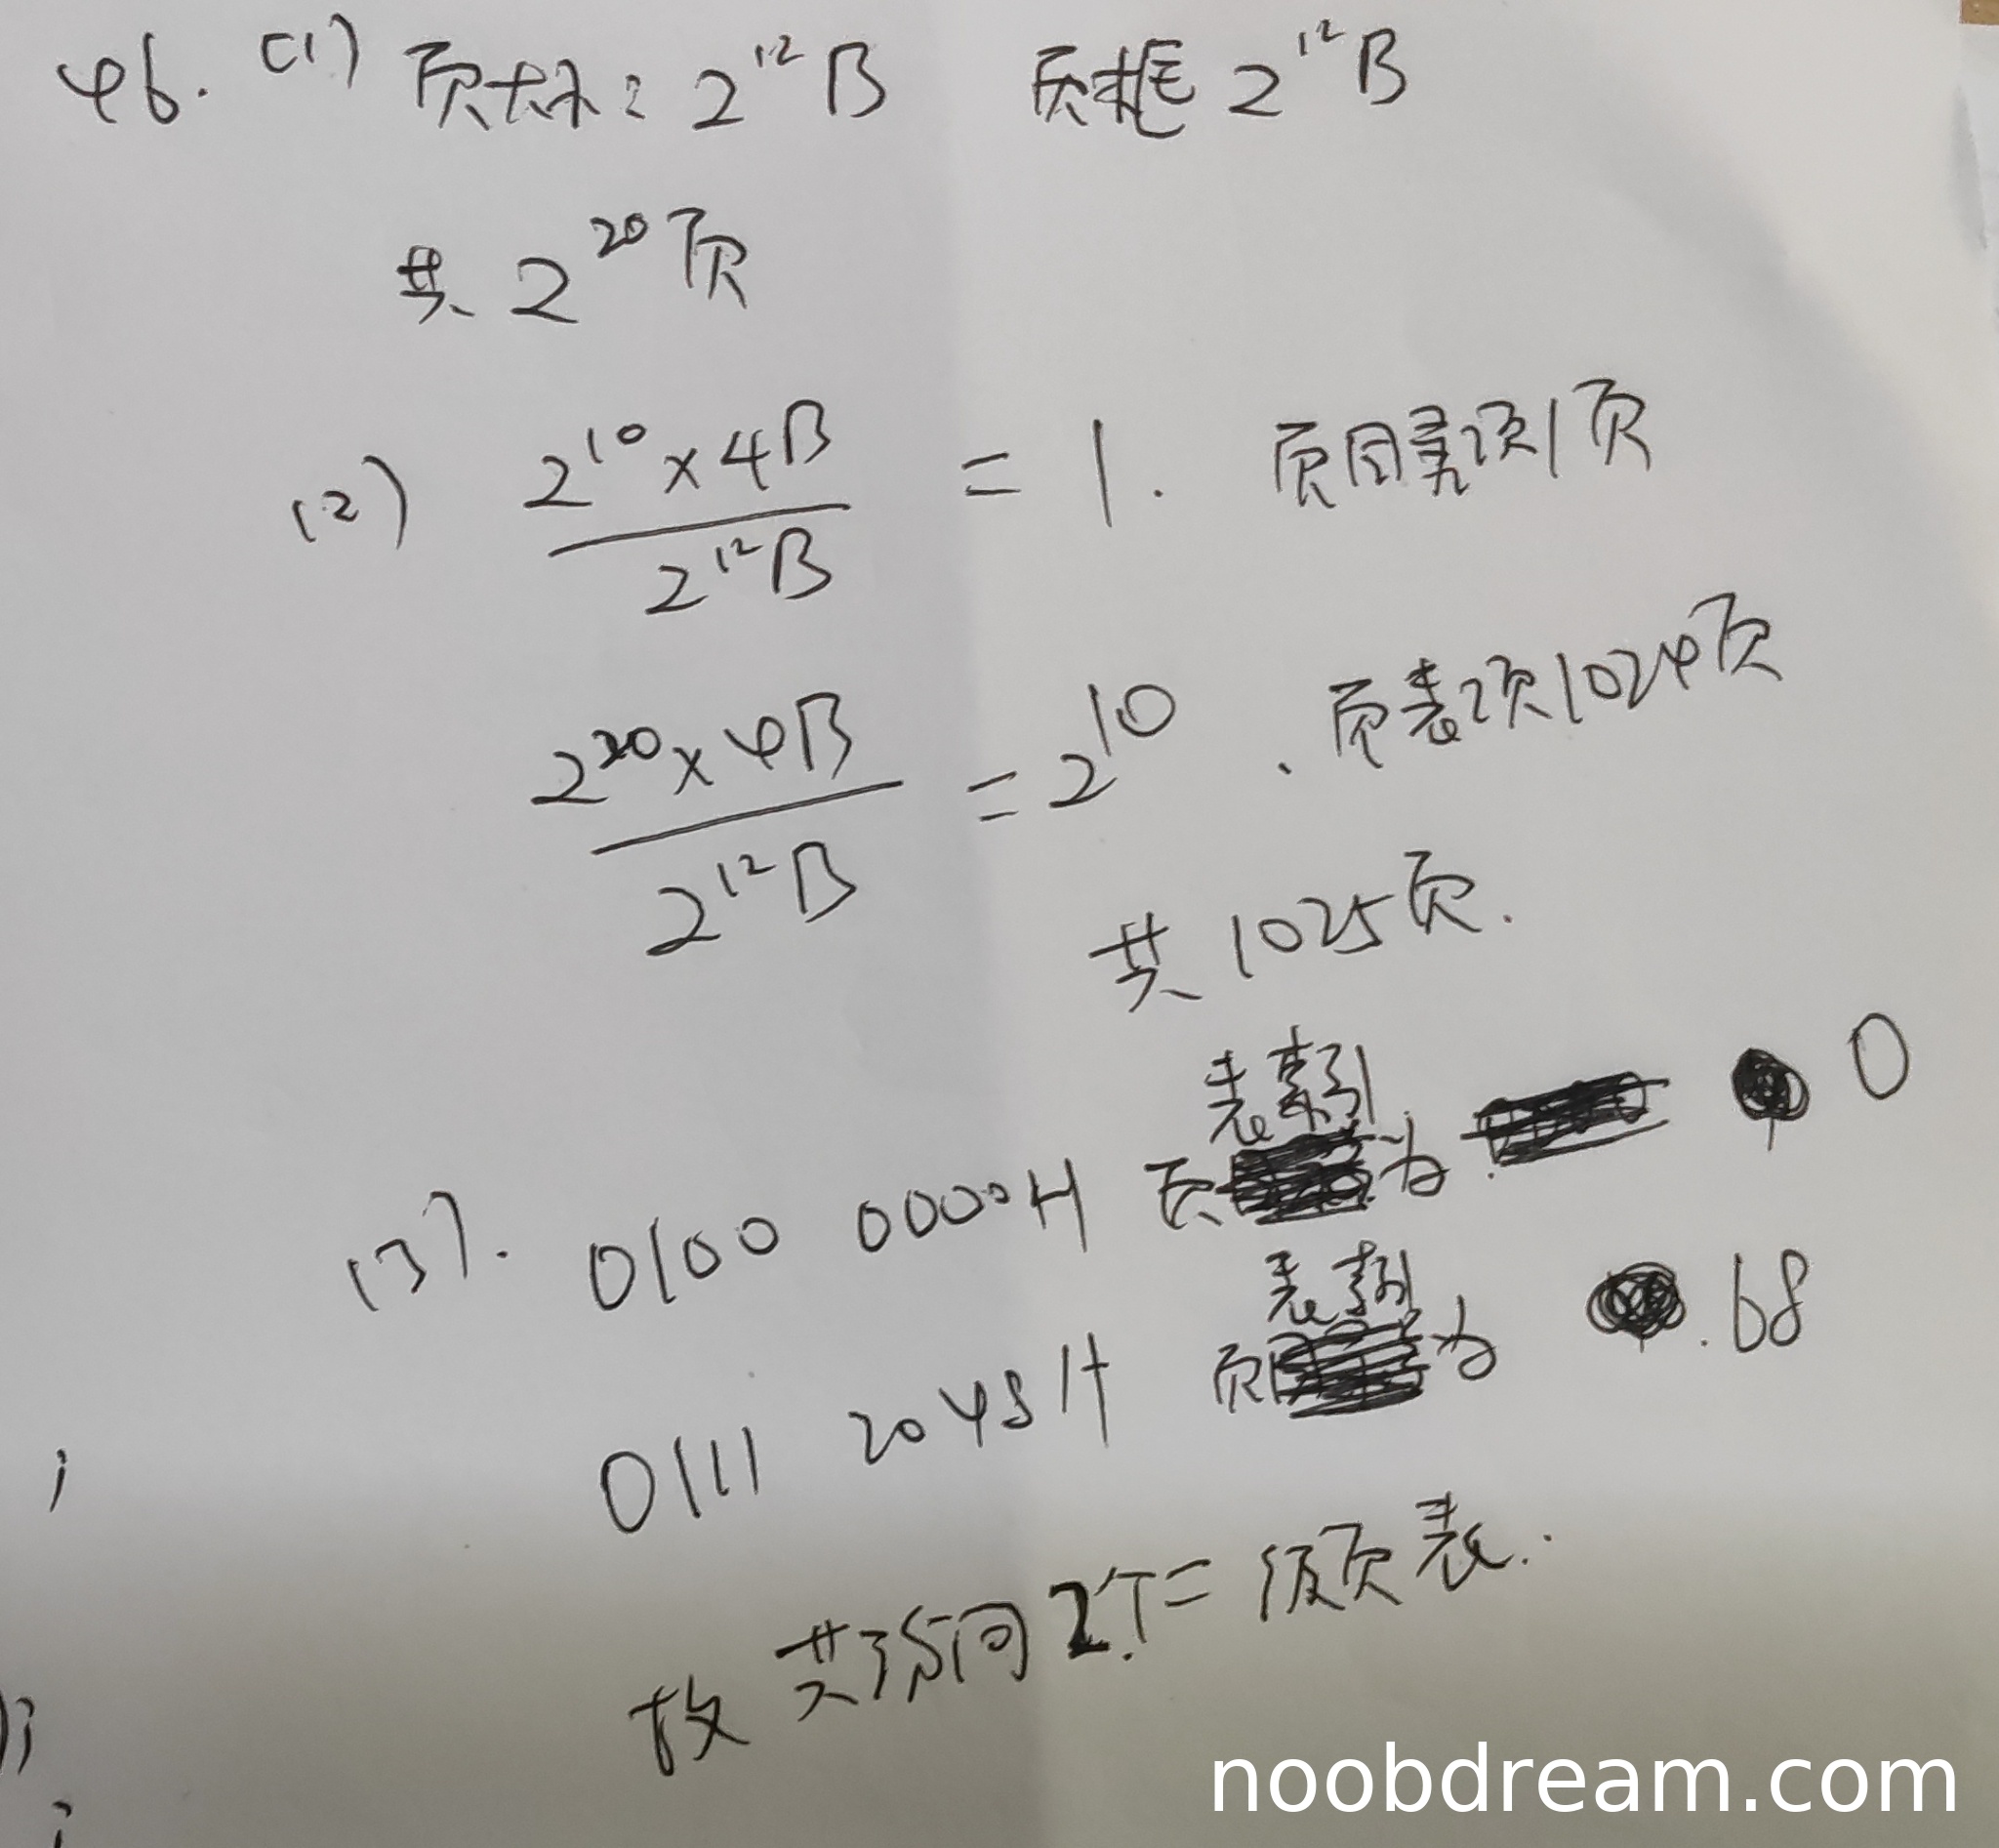 46. (1) 页大小: 2^12 B 页框 2^12 B
共 2^20 页
(2) 2^10 × 4B / 2^12 B = 1. 页目录项1页
2^20 × 4B / 2^12 B = 2^10 . 页表项1024页
共 1025页.
(3). 0100 0000H 页表索引为 0
0111 2048H 页表索引为 .68
故 共访问 2个二级页表.
noobdream.com